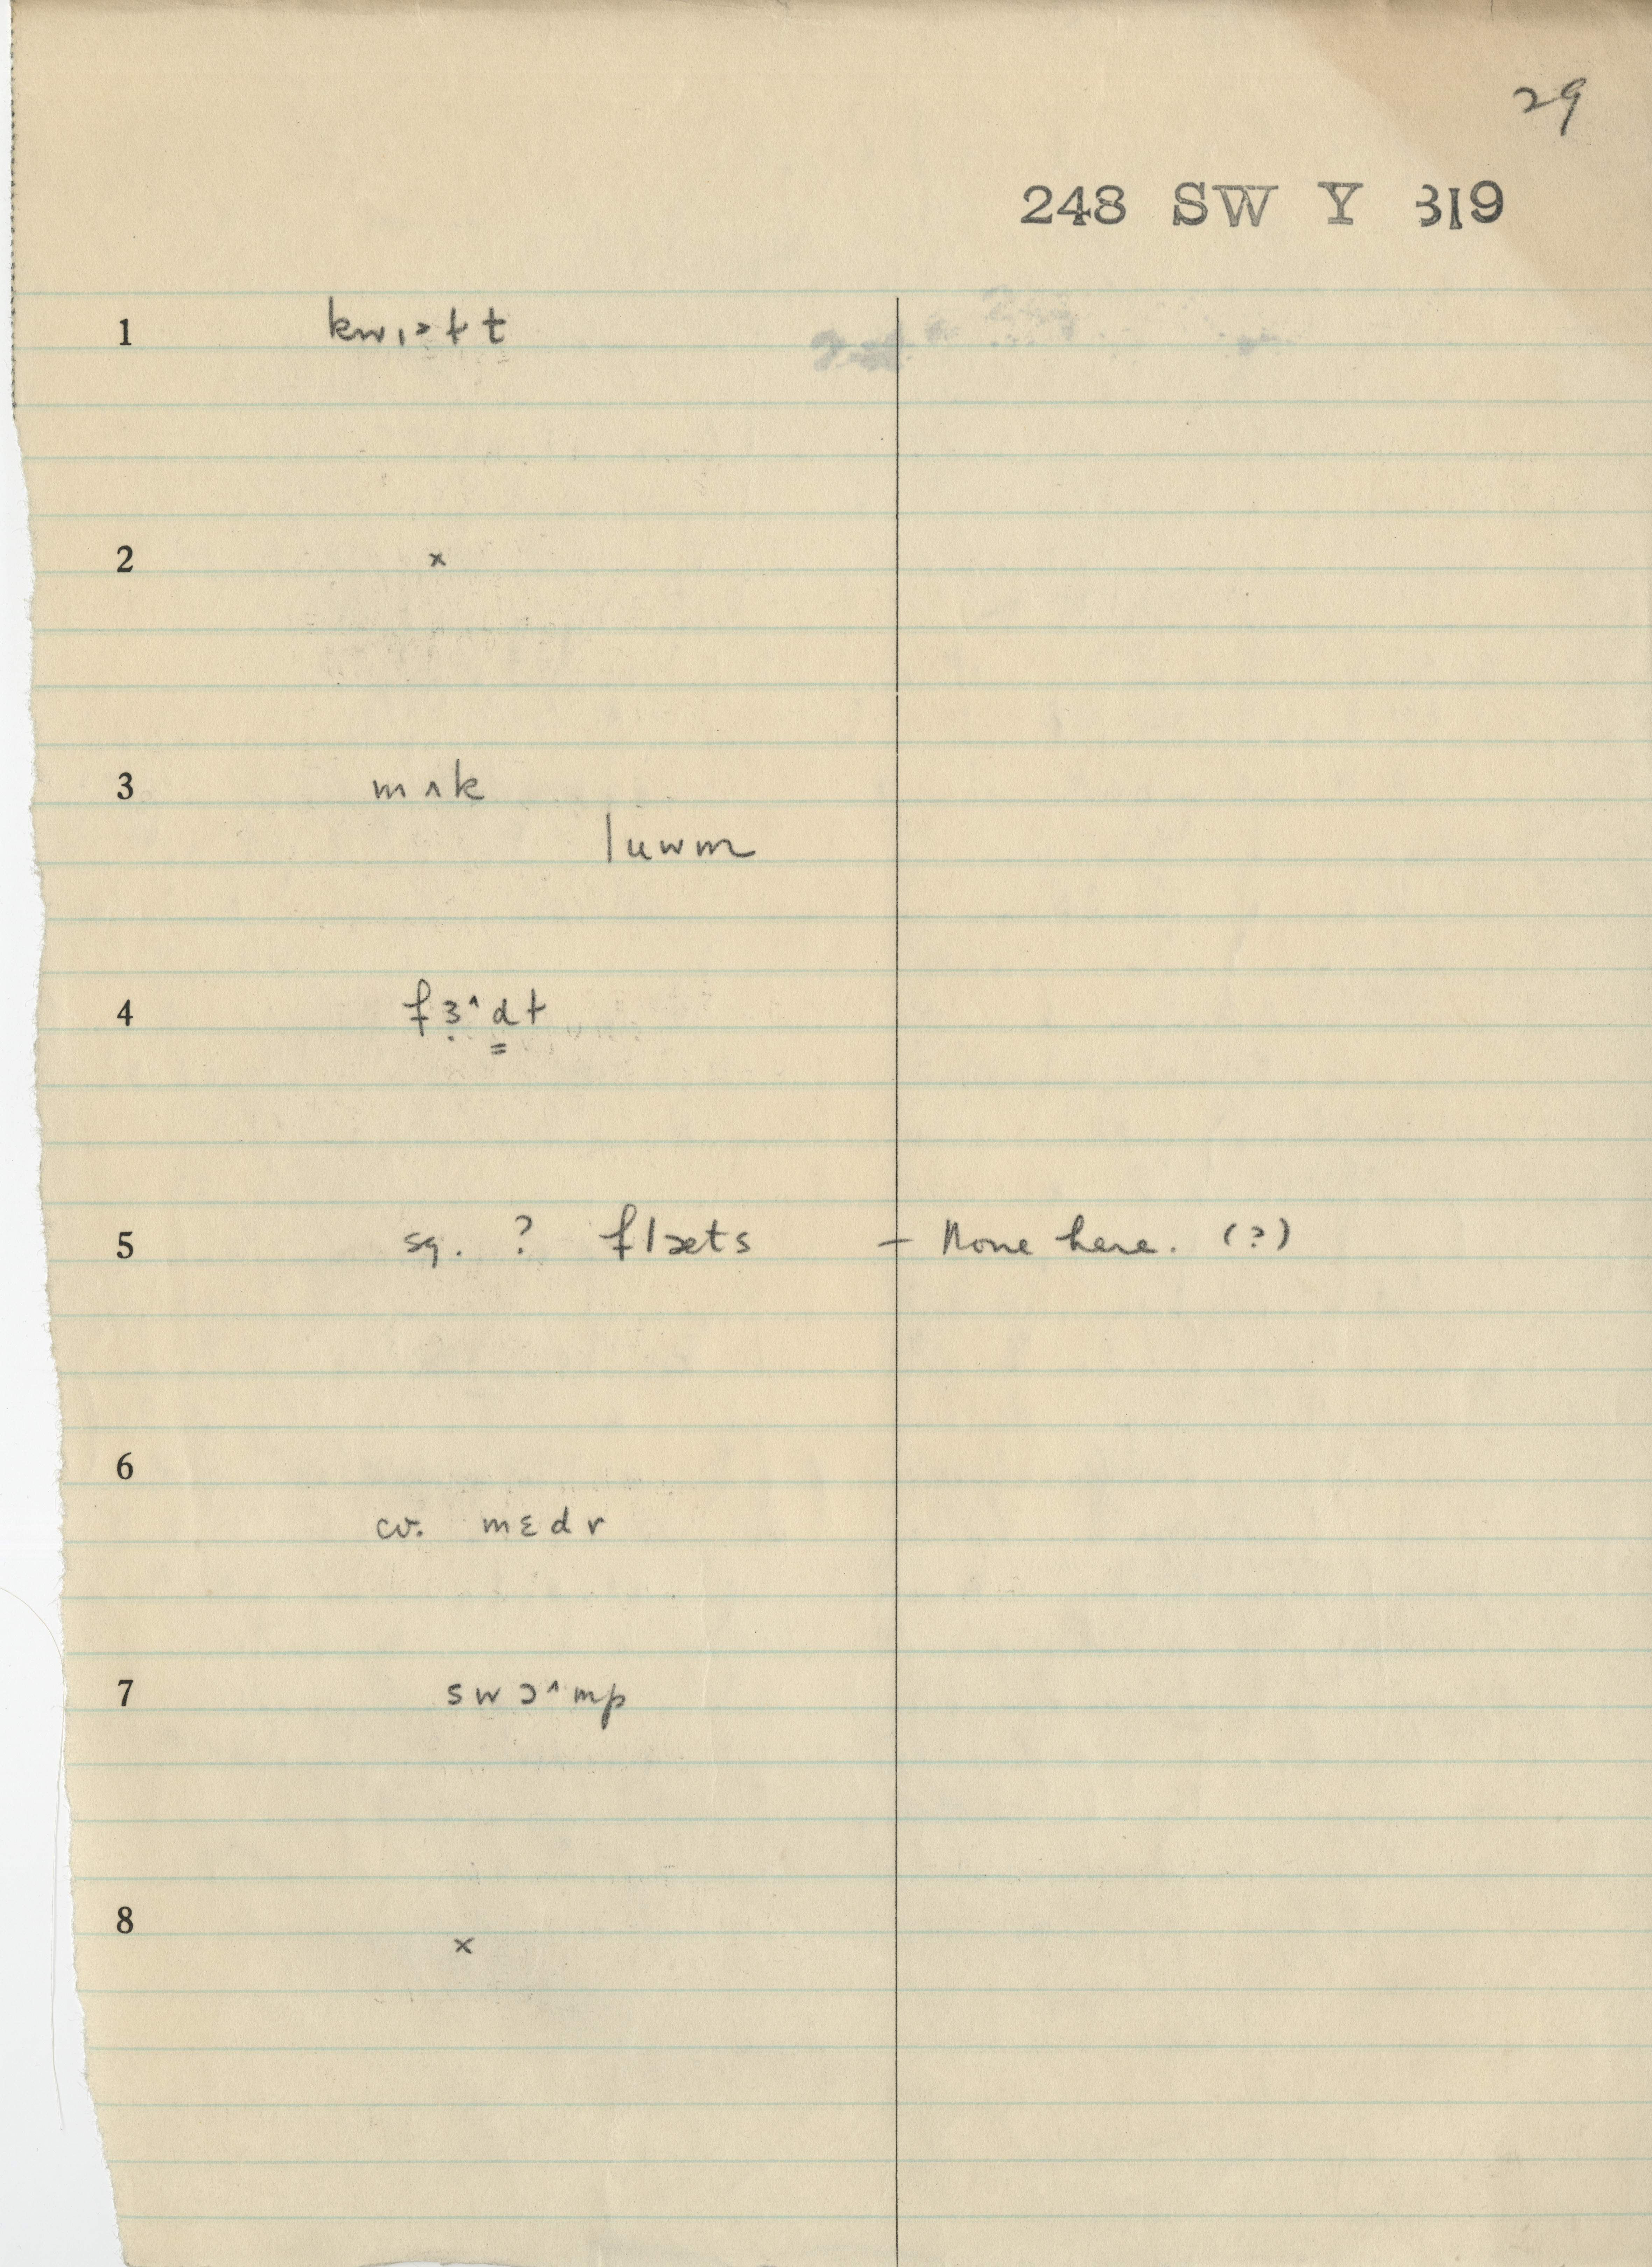 29
248 SW Y 319
1
2 ×
3 mʌk
luwm
4
5 sg. ? flæts – None here. (?)
6
cv. mɛdr
7 swɔ^mp
8 ×